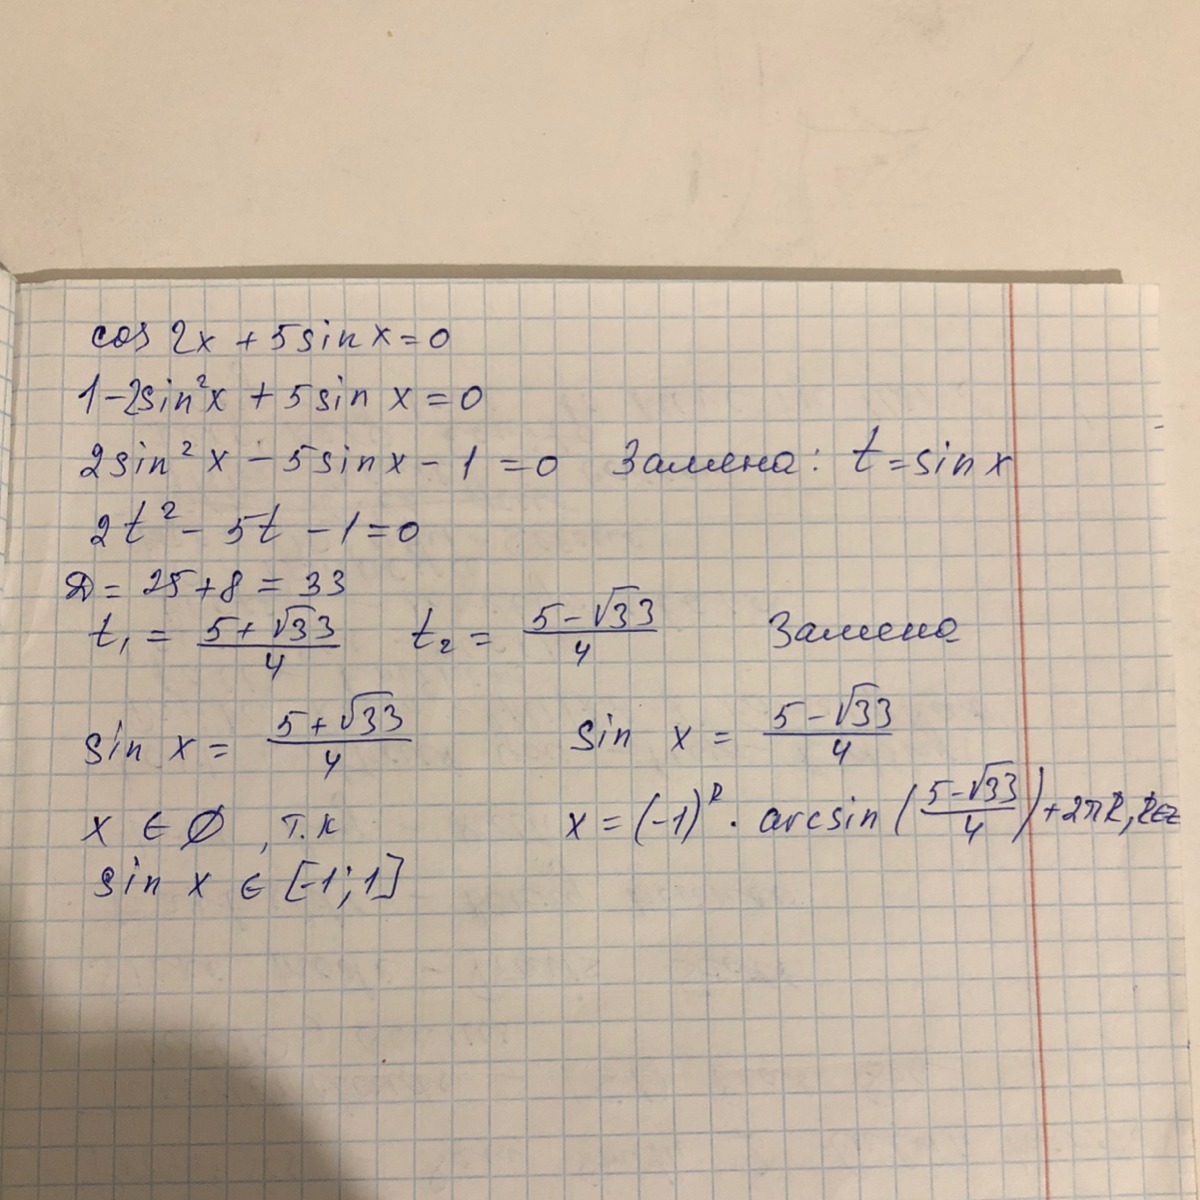 cos 2x + 5 sin x = 0
1 - 2sin²x + 5 sin x = 0
2 sin² x - 5 sin x - 1 = 0 Замена: t = sin x
2t² - 5t - 1 = 0
D = 25 + 8 = 33
t₁ = (5 + √33)/4 t₂ = (5 - √33)/4 Замена
sin x = (5 + √33)/4 sin x = (5 - √33)/4
x ∈ ∅, т.к x = (-1)ᵏ · arcsin((5 - √33)/4) + 2πk, k∈z
sin x ∈ [-1; 1]